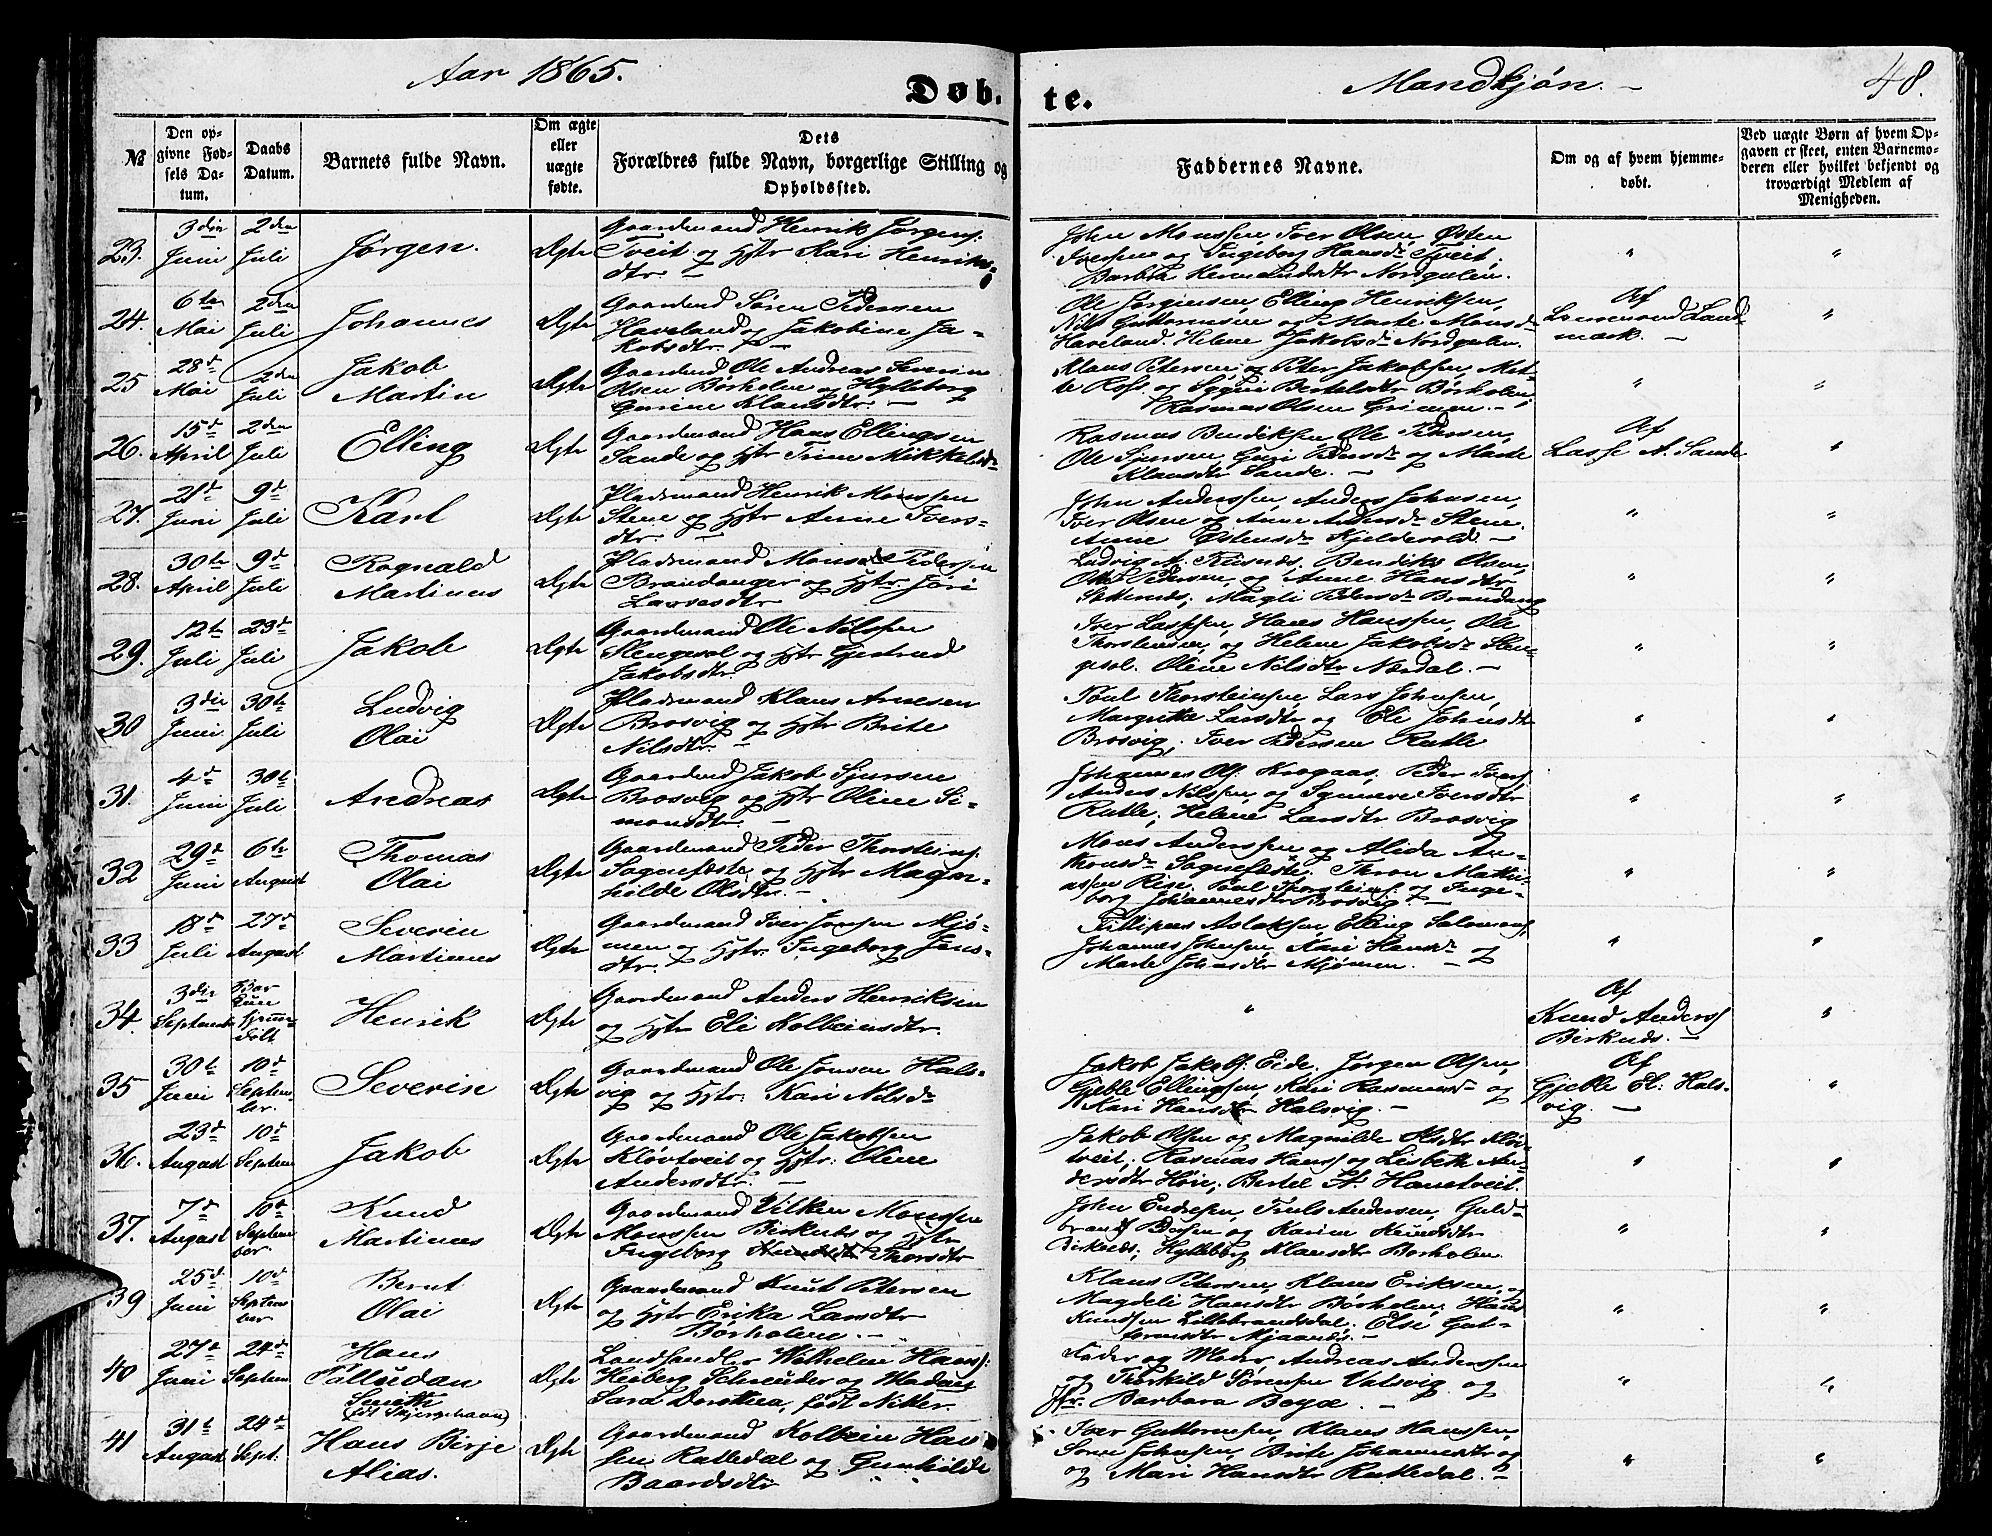 Aar 1865.
Døb-
te.
Mandkjøn. -
48.
No
Den op-
givne Fød-
sels Da-
tum.
Daabs
Datum.
Barnets fulde Navn.
Om ægte
eller
uægte
fødte.
Dets
Forældres fulde Navn, borgerlige Stilling og
Opholdssted.
Faddernes Navne.
Om og af hvem hjemme-
døbt.
Ved uægte Børn af hvem Op-
gaven er skeet, enten Barnemo-
deren eller hvilket bekjendt og
troværdigt Medlem af
Menigheden.
23.
3die Juni
2den Juli
Jørgen.
Ægte
Gaardmand Henrik Jørgens.
Tveit og Hstr Kari Henriks-
dtr. -
John Monssen, Iver Olsen, Østen
Iversen og Ingeborg Hansdr Tveit;
Nordgulen.
24.
6te Mai
2den Juli
Johannes
Ægte
Gaardmd Søren Pedersen
Haveland og Jakobine Ja-
kobsdtr. -
Ole Jørgensen, Elling Henriksen,
Nils Guttormsen og Marte Monsdr
Haveland. Helene Jakobsdr Nordgulen.
Af
Lensmand Land-
mark. -
25
28d Mai
2den Juli
Jakob
Martin
Ægte
Gaardmd Ole Andreas Severin
Olsen Børholm og Hylleborg
Gurine Klausdtr. -
Klaus Petersen og Peter Jakobsen, Met-
te og Bertelsdtr Børholm;
Rasmus Olsen -
26.
15d April
2den Juli
Elling
Ægte
Gaardmand Hans Ellingsen
Sande og Hstr Trine Mikkelsdr
Rasmus Bendiksen, Ole Pedersen,
Ole Sjursen, Guri Pedersdr og Marte
Klausdtr Sande. -
Af
Lasse A. Sande
27.
21d Juni
9d Juli
Karl
Ægte
Pladsmand Henrik Monssen
Stene og Hstr Anne Ivers-
dtr. -
John Anderssen, Anders Johnsen,
Iver Olsen og Anne Andersdr Stene.
Anne Østensdr Kjeldevold -
28.
30te April
9d Juli
Rognald
Martinus
Ægte
Pladsmand Mons Pedersen
Brandanger og Hstr. Jori
Larsesdtr
Ludvig A. Bendiks Olsen,
Ole Pedersen, og Anne Hansdtr
Magli Pedersdr Brandang
29.
12te Juli
23d Juli
Jakob
Ægte
Gaardmand Ole Nilssen
Slengesol og Hstr Gjertrud
Jakobsdtr.
Iver Lassesen, Hans Hanssen, Ole
Thorstensen, og Helene Jakobsdr Slen-
gesol. Oline Nilsdtr Nordal. -
30
3die Juni
30te Juli
Ludvig
Olai
Ægte
Pladsmand Klaus Arnesen
Brosvig og Hstr Brite
Nilsdtr. -
Poul Thorsteinsen, Lars Johnsen,
Margrethe Larsdtr og Eli Johnsdtr
Brosvig, Iver Pedersen Rutle
31.
4d Juni
30te Juli
Andreas
Ægte
Gaardmd Jakob Sjursen
Brosvig og Hstr Oline Si-
monsdtr. -
Johannes Ols. Krogaas; Peder Ivers.
Anders Nilssen, og Synneve Iversdtr
Rutle; Helene Larsdtr Brosvig
32
29d Juni
6te August
Thomas
Olai
Ægte
Gaardmand Peder Thorsteins.
Sognefæste og Hstr Magn-
hilde Olsdtr. -
Mons Anderssen og Alida An-
tonsdr Sognefæste; Thron Mathi-
assen Risc. Poul Thorsteins. og Inge-
borg Johannesdtr Brosvig. -
33
18d Juli
27d August
Severin
Martinus
Ægte
Gaardmand Iver Jonsen Mjø-
men og Hstr. Ingeborg Jons-
dtr. -
Fillipus Aslaksen, Elling Salomons.
Johannes Johnsen, Kari Hansdr og
Marte Johnsdtr Mjømen. -
34.
3die Septembr
Henrik
Ægte
Gaardmand Anders Henriksen
og Hstr Eli Kolbeinsdtr.
Af
Knud Anders.
Birknes. -
35
30te Juni
10d Septem-
ber
Severin
Ægte
Gaardmand Ole Jonsen Hals-
vig og Hstr: Kari Nilsdr
Jakob Jakobs. Eide. Jørgen Olsen,
Gjetle Ellingsen, Kari Rasmusdr og
Kari Hansdtr Halsvig. -
Af
Gjetle El: Hals-
vig. -
36.
23d August
10d Septem
Jakob
Ægte
Gaardmand Ole Jakobsen
Kløvtveit og Hstr: Oline
Andersdtr. -
Jakob Olsen og Magnilde Olsdtr Kløv-
tveit; Rasmus Hans. og Lisbeth An-
dersdtr Høie; Bertel
37.
7d August
10d Septem
ber
Knud
Martinus
Ægte
Gaardmand Vilken Monssen
Monssen Birknes og Hstr
Ingeborg Thorsdtr
John Endresen, Truls Andersen, Guld-
brand og Karin Knudsdtr
Birknes; Hylleborg Klausdtr Borholm
39
25d Juni
10d Septem
ber
Bernt
Olai
Ægte
Gaardmand Knut Petersen
og Hstr Erika Larsdtr
Borholm. -
Klaus Petersen, Klaus Eriksen, og
Magdeli Hansdtr Børholm; Hans
Knudsen Lillebrandsdal; Else Gut-
tormsdtr -
40
27de Juni
24de Septem
Hans
Palludan
Smith
Ægte
Landhandler Wilhelm Hans:
Heiberg Schneider og Madame
Sara Dorothea, født Nitter.
Fader og Moder Andreas Anderssen
og Thorkild Sørensen Vatsvig og
Jfr. Barbara Bøyæ. -
41
31te August
24de Sept:
Hans Birje
Alias.
Ægte
Gaardmand Kolbein Han-
sen Rutledal og Gunhilde
Baardsdtr
Iver Guttormsen, Klaus Hanssen,
Johnsen, Brite Johannesdtr og
og Mari Hansdtr Rutledal. -